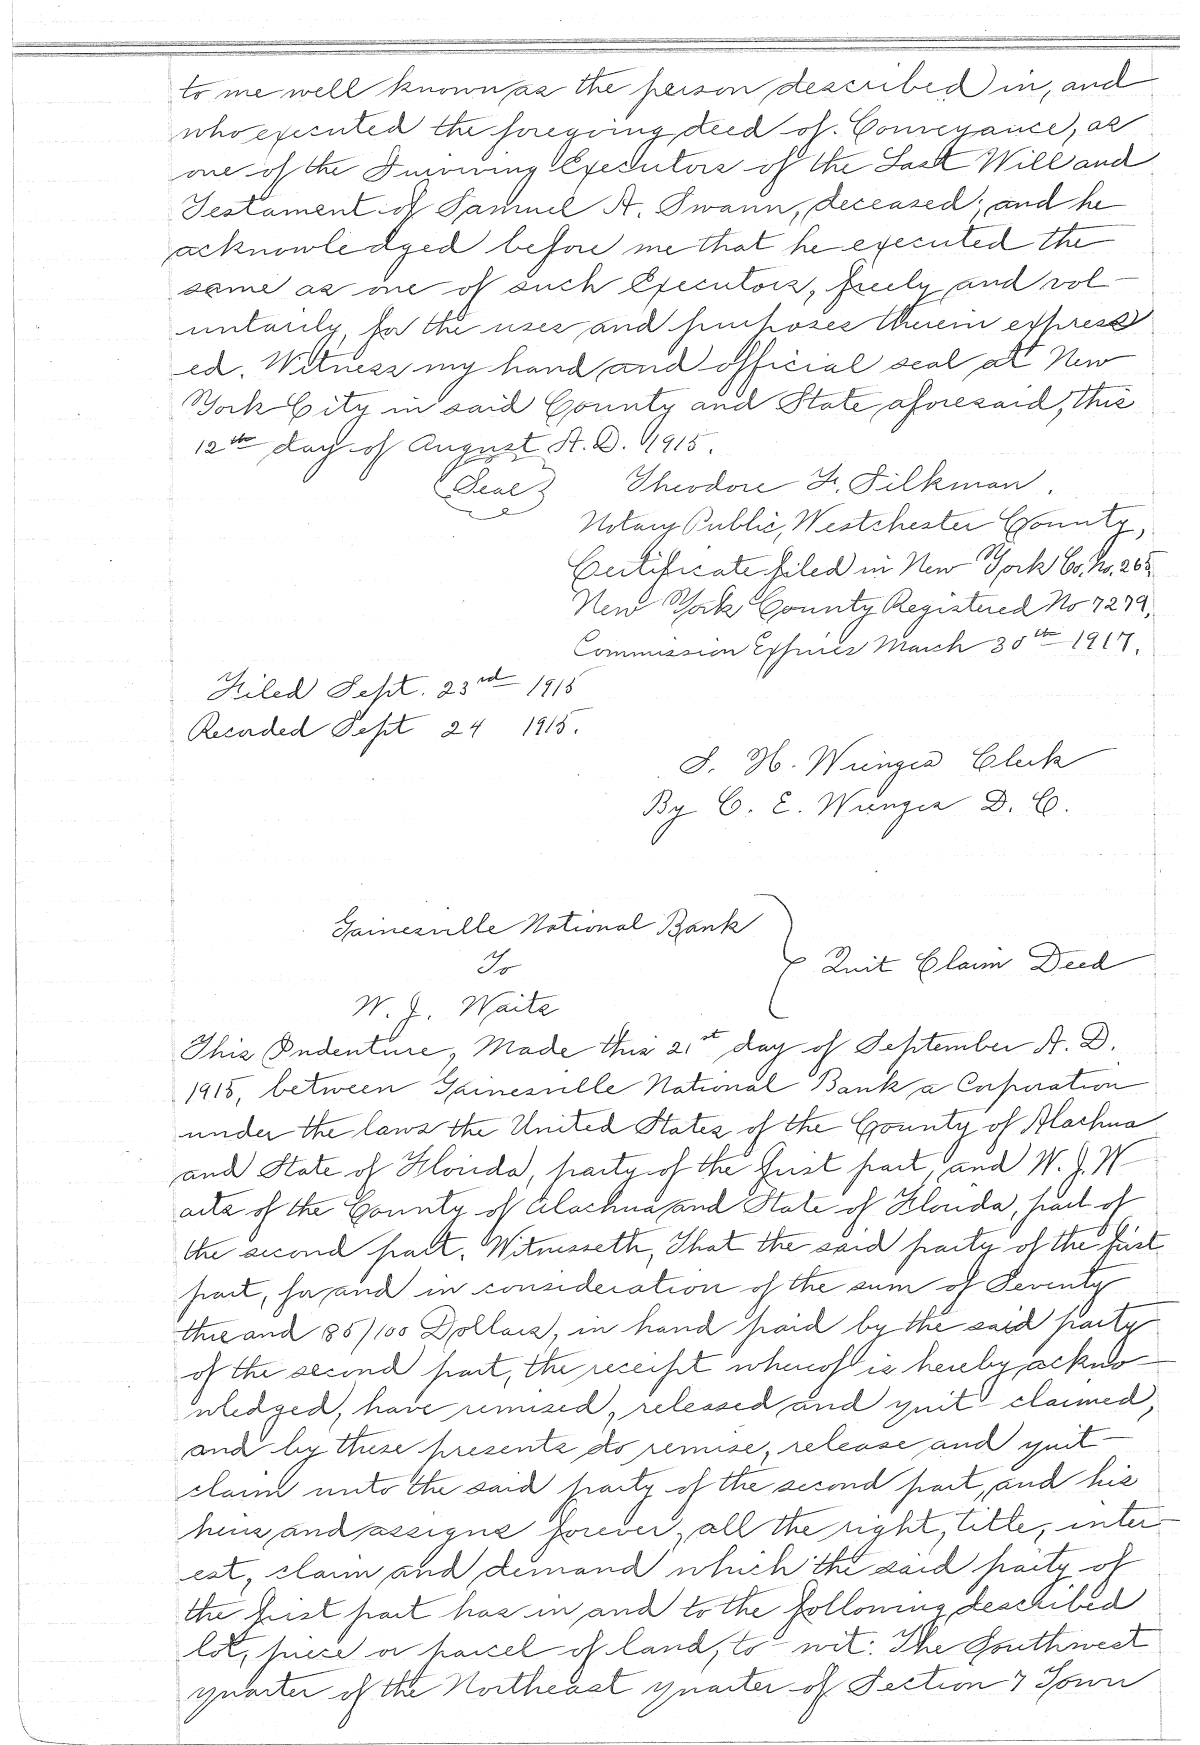 to me well known as the person described in, and
who executed the foregoing deed of Conveyance, as
one of the Surviving Executors of the Last Will and
Testament of Samuel A. Swann, deceased; and he
acknowledged before me that he executed the
same as one of such Executors, freely and vol-
untarily, for the uses and purposes therein express
ed. Witness my hand and official seal at New
York City in said County and State aforesaid, this
12th day of August A.D. 1915.
(Seal) Theodore F. Silkman.
Notary Public, Westchester County,
Certificate filed in New York Co. No. 265
New York County Registered No 7279,
Commission Expires March 30th 1917.
Filed Sept. 23rd 1915
Recorded Sept 24 1915.
S. H. Wienges Clerk
By C. E. Wienges D. C.
Gainesville National Bank
To
Quit Claim Deed
W. J. Waits
This Indenture, Made this 21st day of September A. D.
1915, between Gainesville National Bank a Corporation
under the laws the United States of the County of Alachua
and State of Florida, party of the first part, and W. J. W
aits of the County of Alachua and State of Florida, part of
the second part. Witnesseth, That the said party of the first
part, for and in consideration of the sum of Seventy
three and 85/100 Dollars, in hand paid by the said party
of the second part, the receipt whereof is hereby ackno-
wledged, have remised, released and quit claimed,
and by these presents do remise, release and quit-
claim unto the said party of the second part, and his
heirs and assigns forever, all the right, title, inter-
est, claim and demand which the said party of
the first part has in and to the following described
lot, piece or parcel of land, to wit: The Southwest
quarter of the Northeast quarter of Section 7 Town